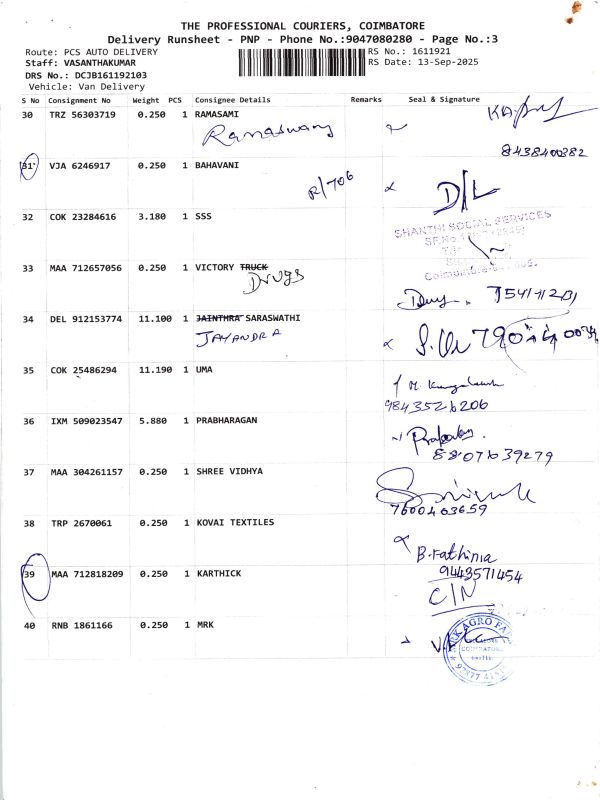 THE PROFESSIONAL COURIERS, COIMBATORE
Delivery Runsheet - PNP - Phone No.:9047080280 - Page No.:3
Route: PCS AUTO DELIVERY
RS No.: 1611921
Staff: VASANTHAKUMAR
RS Date: 13-Sep-2025
DRS No.: DCJB161192103
Vehicle: Van Delivery
S No Consignment No Weight PCS Consignee Details Remarks Seal & Signature
30 TRZ 56303719 0.250 1 RAMASAMI
Ramaswamy
8438400382
31 VJA 6246917 0.250 1 BAHAVANI
R/706
D/L
32 COK 23284616 3.180 1 SSS
SHANTHI SOCIAL SERVICES
33 MAA 712657056 0.250 1 VICTORY TRUCK
Drugs
34 DEL 912153774 11.100 1 JAINTHRA SARASWATHI
JAYANDRA
35 COK 25486294 11.190 1 UMA
9843526206
36 IXM 509023547 5.880 1 PRABHARAGAN
8807639279
37 MAA 304261157 0.250 1 SHREE VIDHYA
7600403659
38 TRP 2670061 0.250 1 KOVAI TEXTILES
B.Fathima
9443571454
39 MAA 712818209 0.250 1 KARTHICK
C/N
40 RNB 1861166 0.250 1 MRK